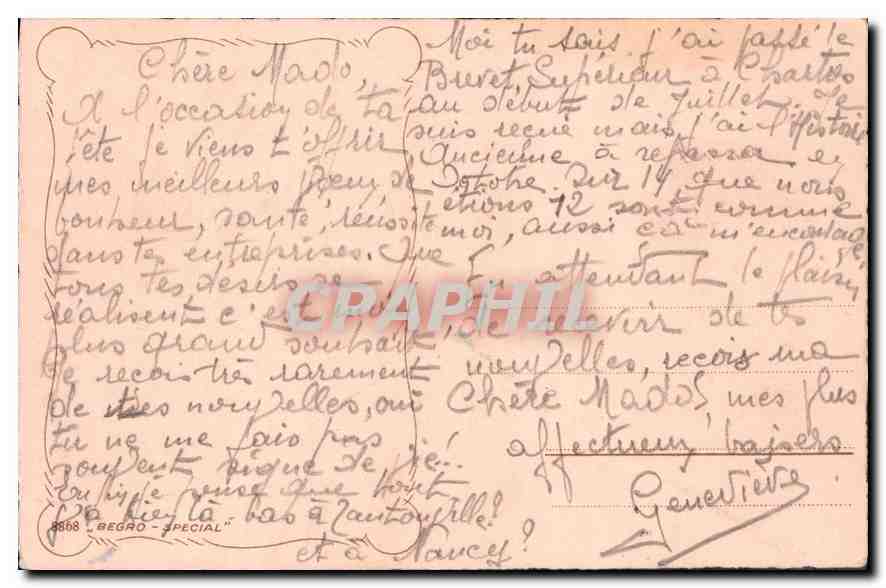 Chère Mado,
A l'occasion de ta
fête je viens t'offrir
mes meilleurs vœux de
bonheur, santé, réussite
dans tes entreprises. Que
tous tes désirs se
réalisent c'est mon
plus grand souhait.
Je reçois très rarement
de tes nouvelles, oui
tu ne me fais pas
souvent signe de vie!...
Enfin je pense que tout
va bien là-bas à ?
et à Nancy?
8868 "BEGRO - SPECIAL"
Moi tu sais j'ai passé le
Brevet Supérieur à Chartres
au début de Juillet. Je
suis reçue mais j'ai l'Histoire
Ancienne à repasser en
Octobre. Sur 14, que nous
étions 12 sont comme
moi, aussi ça m'encourage
En attendant le plaisir
de recevoir de tes
nouvelles, reçois ma
Chère Mado, mes plus
affectueux baisers
Geneviève
CPAPHIL